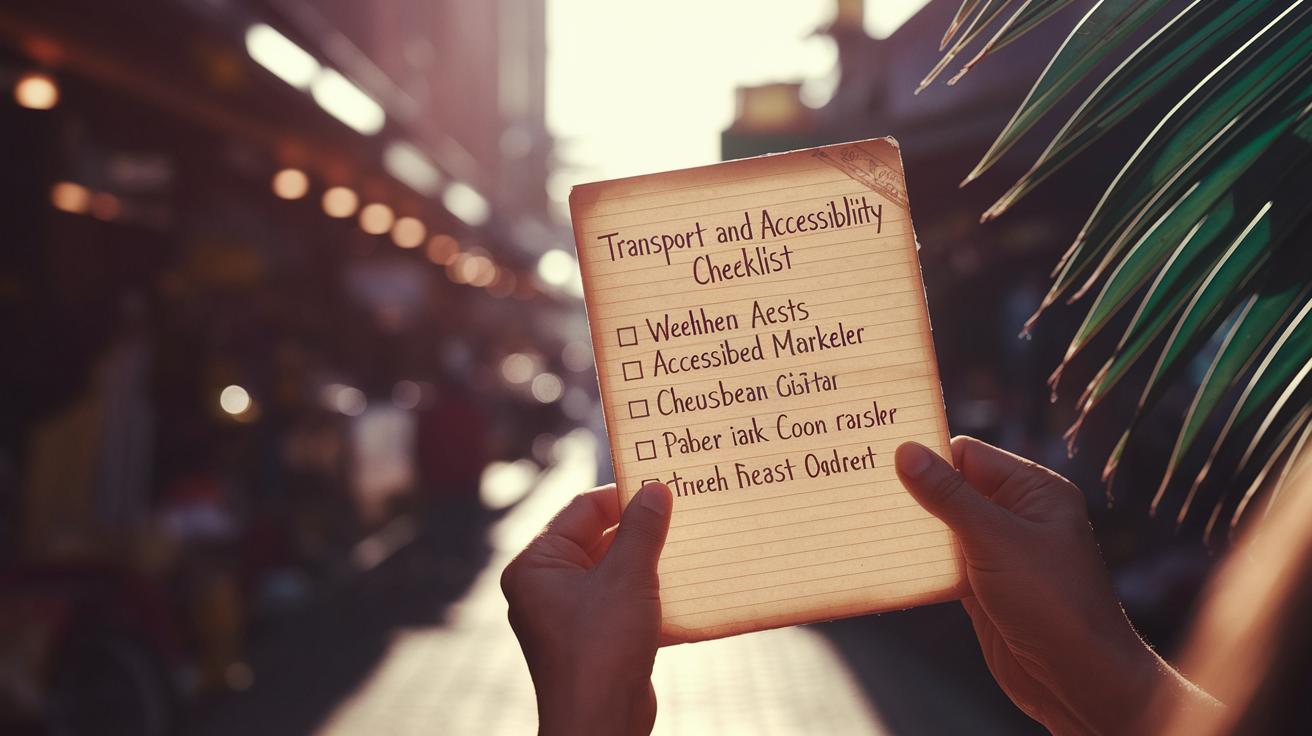 Transport and Accessiblity
Checklist
Weehhen Aests
Accessibed Markeler
Cheusbean Gibitar
Paber iark Coon raisler
Feast Ogdrert